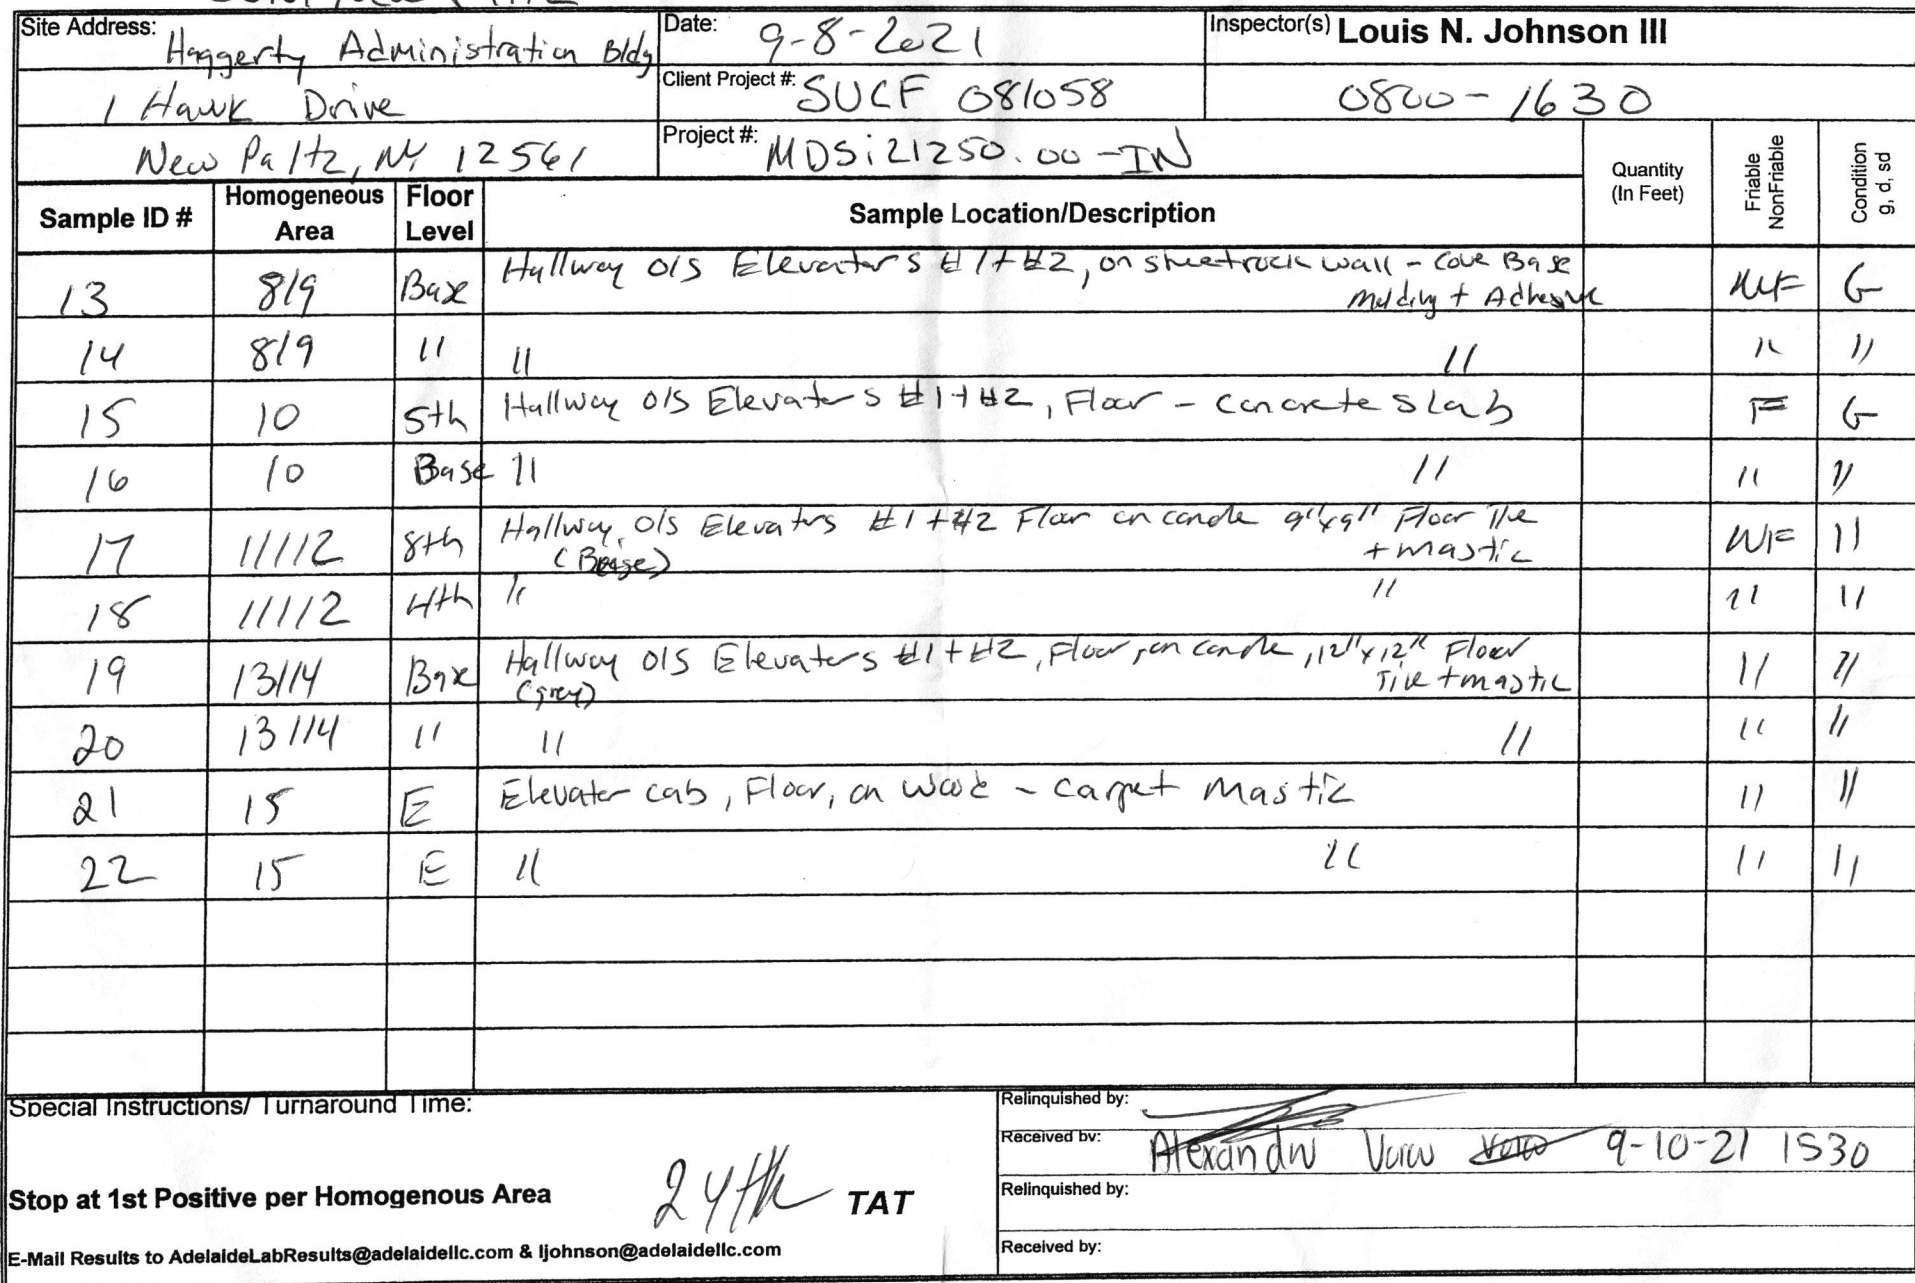 Site Address: Haggerty Administration Bldg
1 Hawk Drive
New Paltz, NY 12561
Date: 9-8-2021
Client Project #: SUCF 081058
Project #: MDSi21250.00-IN
Inspector(s) Louis N. Johnson III
0800-1630
Sample ID # Homogeneous Area Floor Level Sample Location/Description Quantity (In Feet) Friable NonFriable Condition g, d, sd
13 8/9 Base Hallway O/S Elevators #1+#2, on sheetrock wall - Cove Base Molding + Adhesive NF G
14 8/9 " " " " "
15 10 5th Hallway O/S Elevators #1+#2, Floor - Concrete Slab F G
16 10 Base " " " "
17 11/12 8th Hallway O/S Elevators #1+#2 Floor on concrete 9"x9" Floor Tile + mastic (Beige) NF "
18 11/12 4th " " " "
19 13/14 Base Hallway O/S Elevators #1+#2, Floor, on concrete, 12"x12" Floor Tile + mastic (grey) " "
20 13/14 " " " " "
21 15 E Elevator cab, Floor, on Wood - Carpet Mastic " "
22 15 E " " " "
Special Instructions/ Turnaround Time:
Stop at 1st Positive per Homogenous Area
24 hr TAT
E-Mail Results to AdelaideLabResults@adelaidellc.com & ljohnson@adelaidellc.com
Relinquished by:
Received by: 9-10-21 1530
Relinquished by:
Received by: